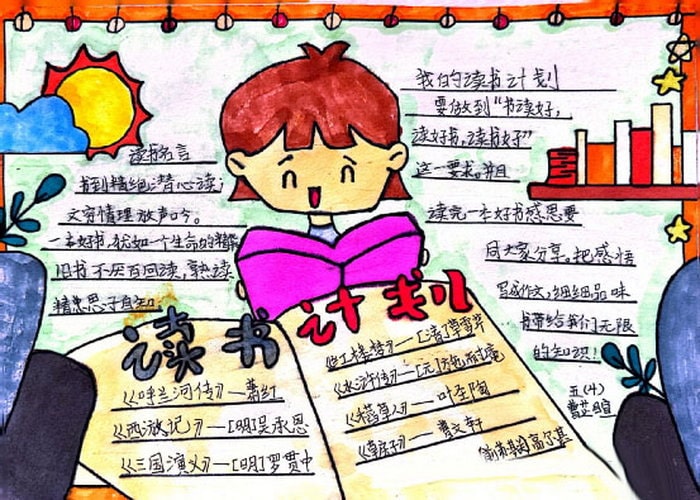 读书名言
书到精绝潜心读
文穷情理放声吟。
一本好书，犹如一个生命的精
旧书不厌百回读，熟读
精思子自知
我的读书计划
要做到“书读好，
读好书，读书好”
这一要求。并且
读完一本好书感思要
同大家分享。把感悟
写成作文，细细品味
书带给我们无限
的知识！
读书计划
《呼兰河传》—萧红
《西游记》—[明]吴承恩
《三国演义》—[明]罗贯中
《红楼梦》—[清]曹雪芹
《水浒传》—[元]施耐庵
《稻草人》—叶圣陶
《草房子》—曹文轩
高尔基
五(4)